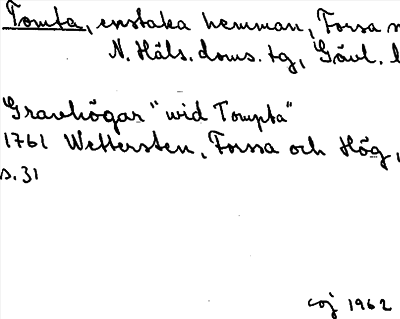 Tomta, enstaka hemman, Forsa
N. Häls. doms. tg, Gävl. l
Gravhögar "wid Tompta"
1761 Wettersten, Forssa och Hög,
s. 31
1962